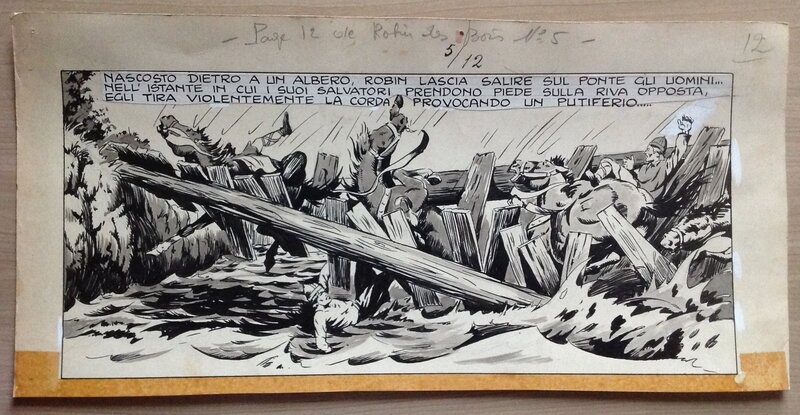 - Page 12 de Robin des Bois N° 5 -
5/12
12
NASCOSTO DIETRO A UN ALBERO, ROBIN LASCIA SALIRE SUL PONTE GLI UOMINI...
NELL'ISTANTE IN CUI I SUOI SALVATORI PRENDONO PIEDE SULLA RIVA OPPOSTA,
EGLI TIRA VIOLENTEMENTE LA CORDA, PROVOCANDO UN PUTIFERIO.....